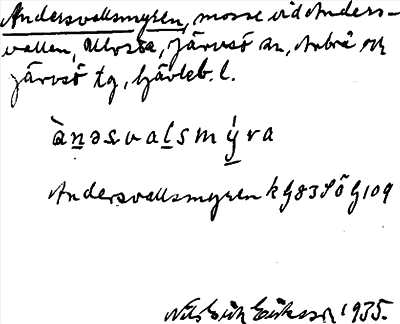 Andersvallsmyren, mosse vid Anders-
vallen, Ulvsta, Järvsö sn, Arbrå och
Järvsö tg, Gävleb. l.
ànəsvaḻsmýra
Andersvallsmyren k G83 SÖ G109
Nils Erik Eriksson 1935.